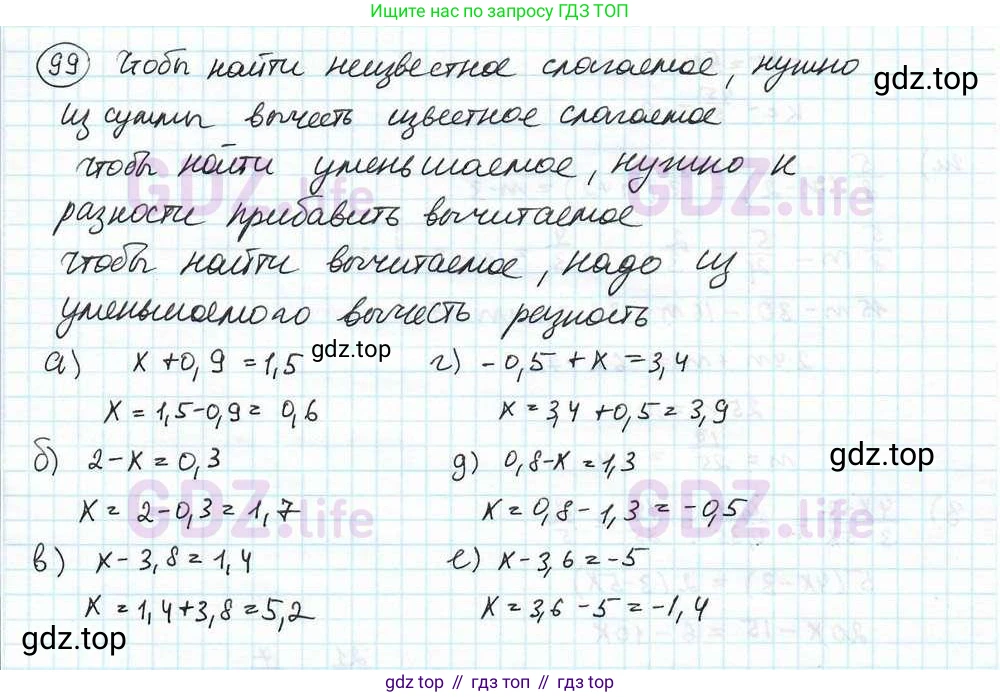 Ищите нас по запросу ГДЗ ТОП
99 Чтобы найти неизвестное слагаемое, нужно
gdz.top
из суммы вычесть известное слагаемое
чтобы найти уменьшаемое, нужно к
GDZ.life GDZ.life
разности прибавить вычитаемое
чтобы найти вычитаемое, надо из
уменьшаемого вычесть разность
gdz.top
а) x + 0,9 = 1,5 г) - 0,5 + x = 3,4
x = 1,5 - 0,9 = 0,6 x = 3,4 + 0,5 = 3,9
б) 2 - x = 0,3 д) 0,8 - x = 1,3
gdz.top
x = 2 - 0,3 = 1,7 x = 0,8 - 1,3 = -0,5
GDZ.life GDZ.life
в) x - 3,8 = 1,4 е) x - 3,6 = -5
x = 1,4 + 3,8 = 5,2 x = 3,6 - 5 = -1,4
gdz.top
gdz.top // gdz.top // gdz.top